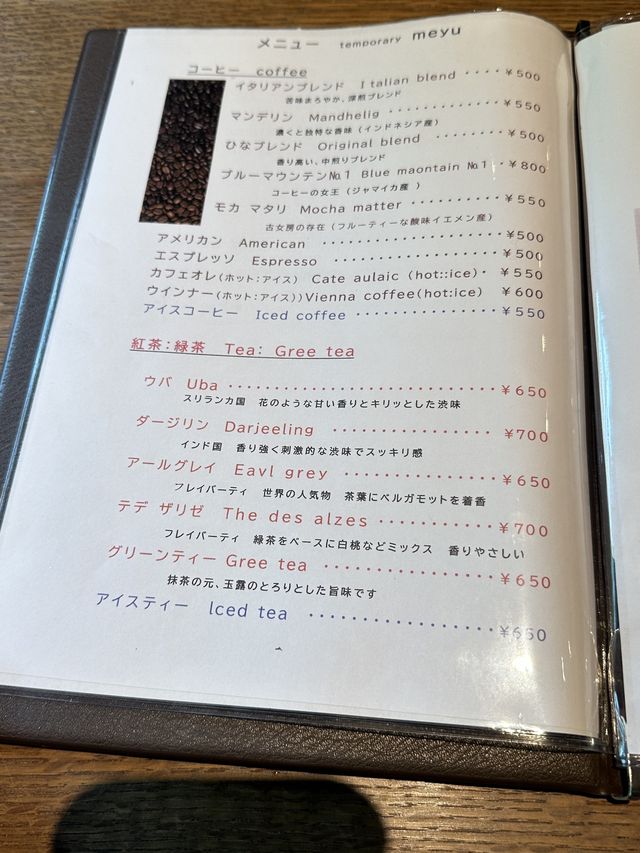 メニュー temporary meyu
コーヒー coffee
イタリアンブレンド Italian blend ････¥500
苦味まろやか、深煎ブレンド
マンデリン Mandhelig ････････････¥550
濃くと独特な香味（インドネシア産）
ひなブレンド Original blend ･･･････¥500
香り高い、中煎りブレンド
ブルーマウンテン№1 Blue maontain №1 ･･¥800
コーヒーの女王（ジャマイカ産 ）
モカ マタリ Mocha matter ･･････････¥550
古女房の存在（フルーティーな酸味イエメン産）
アメリカン American ･･････････････････¥500
エスプレッソ Espresso ････････････････¥500
カフェオレ(ホット:アイス) Cate aulaic (hot::ice)･ ¥550
ウインナー(ホット:アイス))Vienna coffee(hot:ice) ¥600
アイスコーヒー Iced coffee ･･････････････¥550
紅茶:緑茶 Tea: Gree tea
ウバ Uba ･･････････････････････････････¥650
スリランカ国 花のような甘い香りとキリッとした渋味
ダージリン Darjeeling ････････････････ ¥700
インド国 香り強く刺激的な渋味でスッキリ感
アールグレイ Eavl grey ･･････････････¥650
フレイバーティ 世界の人気物 茶葉にベルガモットを着香
テデ ザリゼ The des alzes ････････････¥700
フレイバーティ 緑茶をベースに白桃などミックス 香りやさしい
グリーンティー Gree tea ･････････････････¥650
抹茶の元、玉露のとろりとした旨味です
アイスティー lced tea ･･････････････････¥650